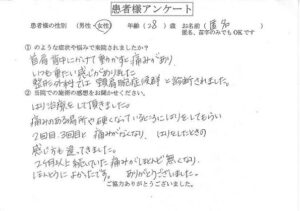 患者様アンケート
患者様の性別 (男性・女性) 年齢(28)歳 お名前(匿名)
匿名、苗字のみでもOKです
① どのような症状や悩みで来院されましたか？
首肩背中にかけて動かすと痛みがあり、
いつも重たい感じがありました。
整形外科では 頸肩腕症候群と診断されました。
② 当院での施術の感想をお聞かせください。
はり治療をして頂きました。
痛みのある局所や硬くなっているところにはりをしてもらい
2回目、3回目と 痛みがなくなり、はりをしたときの
感じ方も 違ってきました。
2ヶ月以上続いていた痛みがほとんど無くなり、
ほんとうによかったです。 ありがとうございました。
ご協力ありがとうございました。